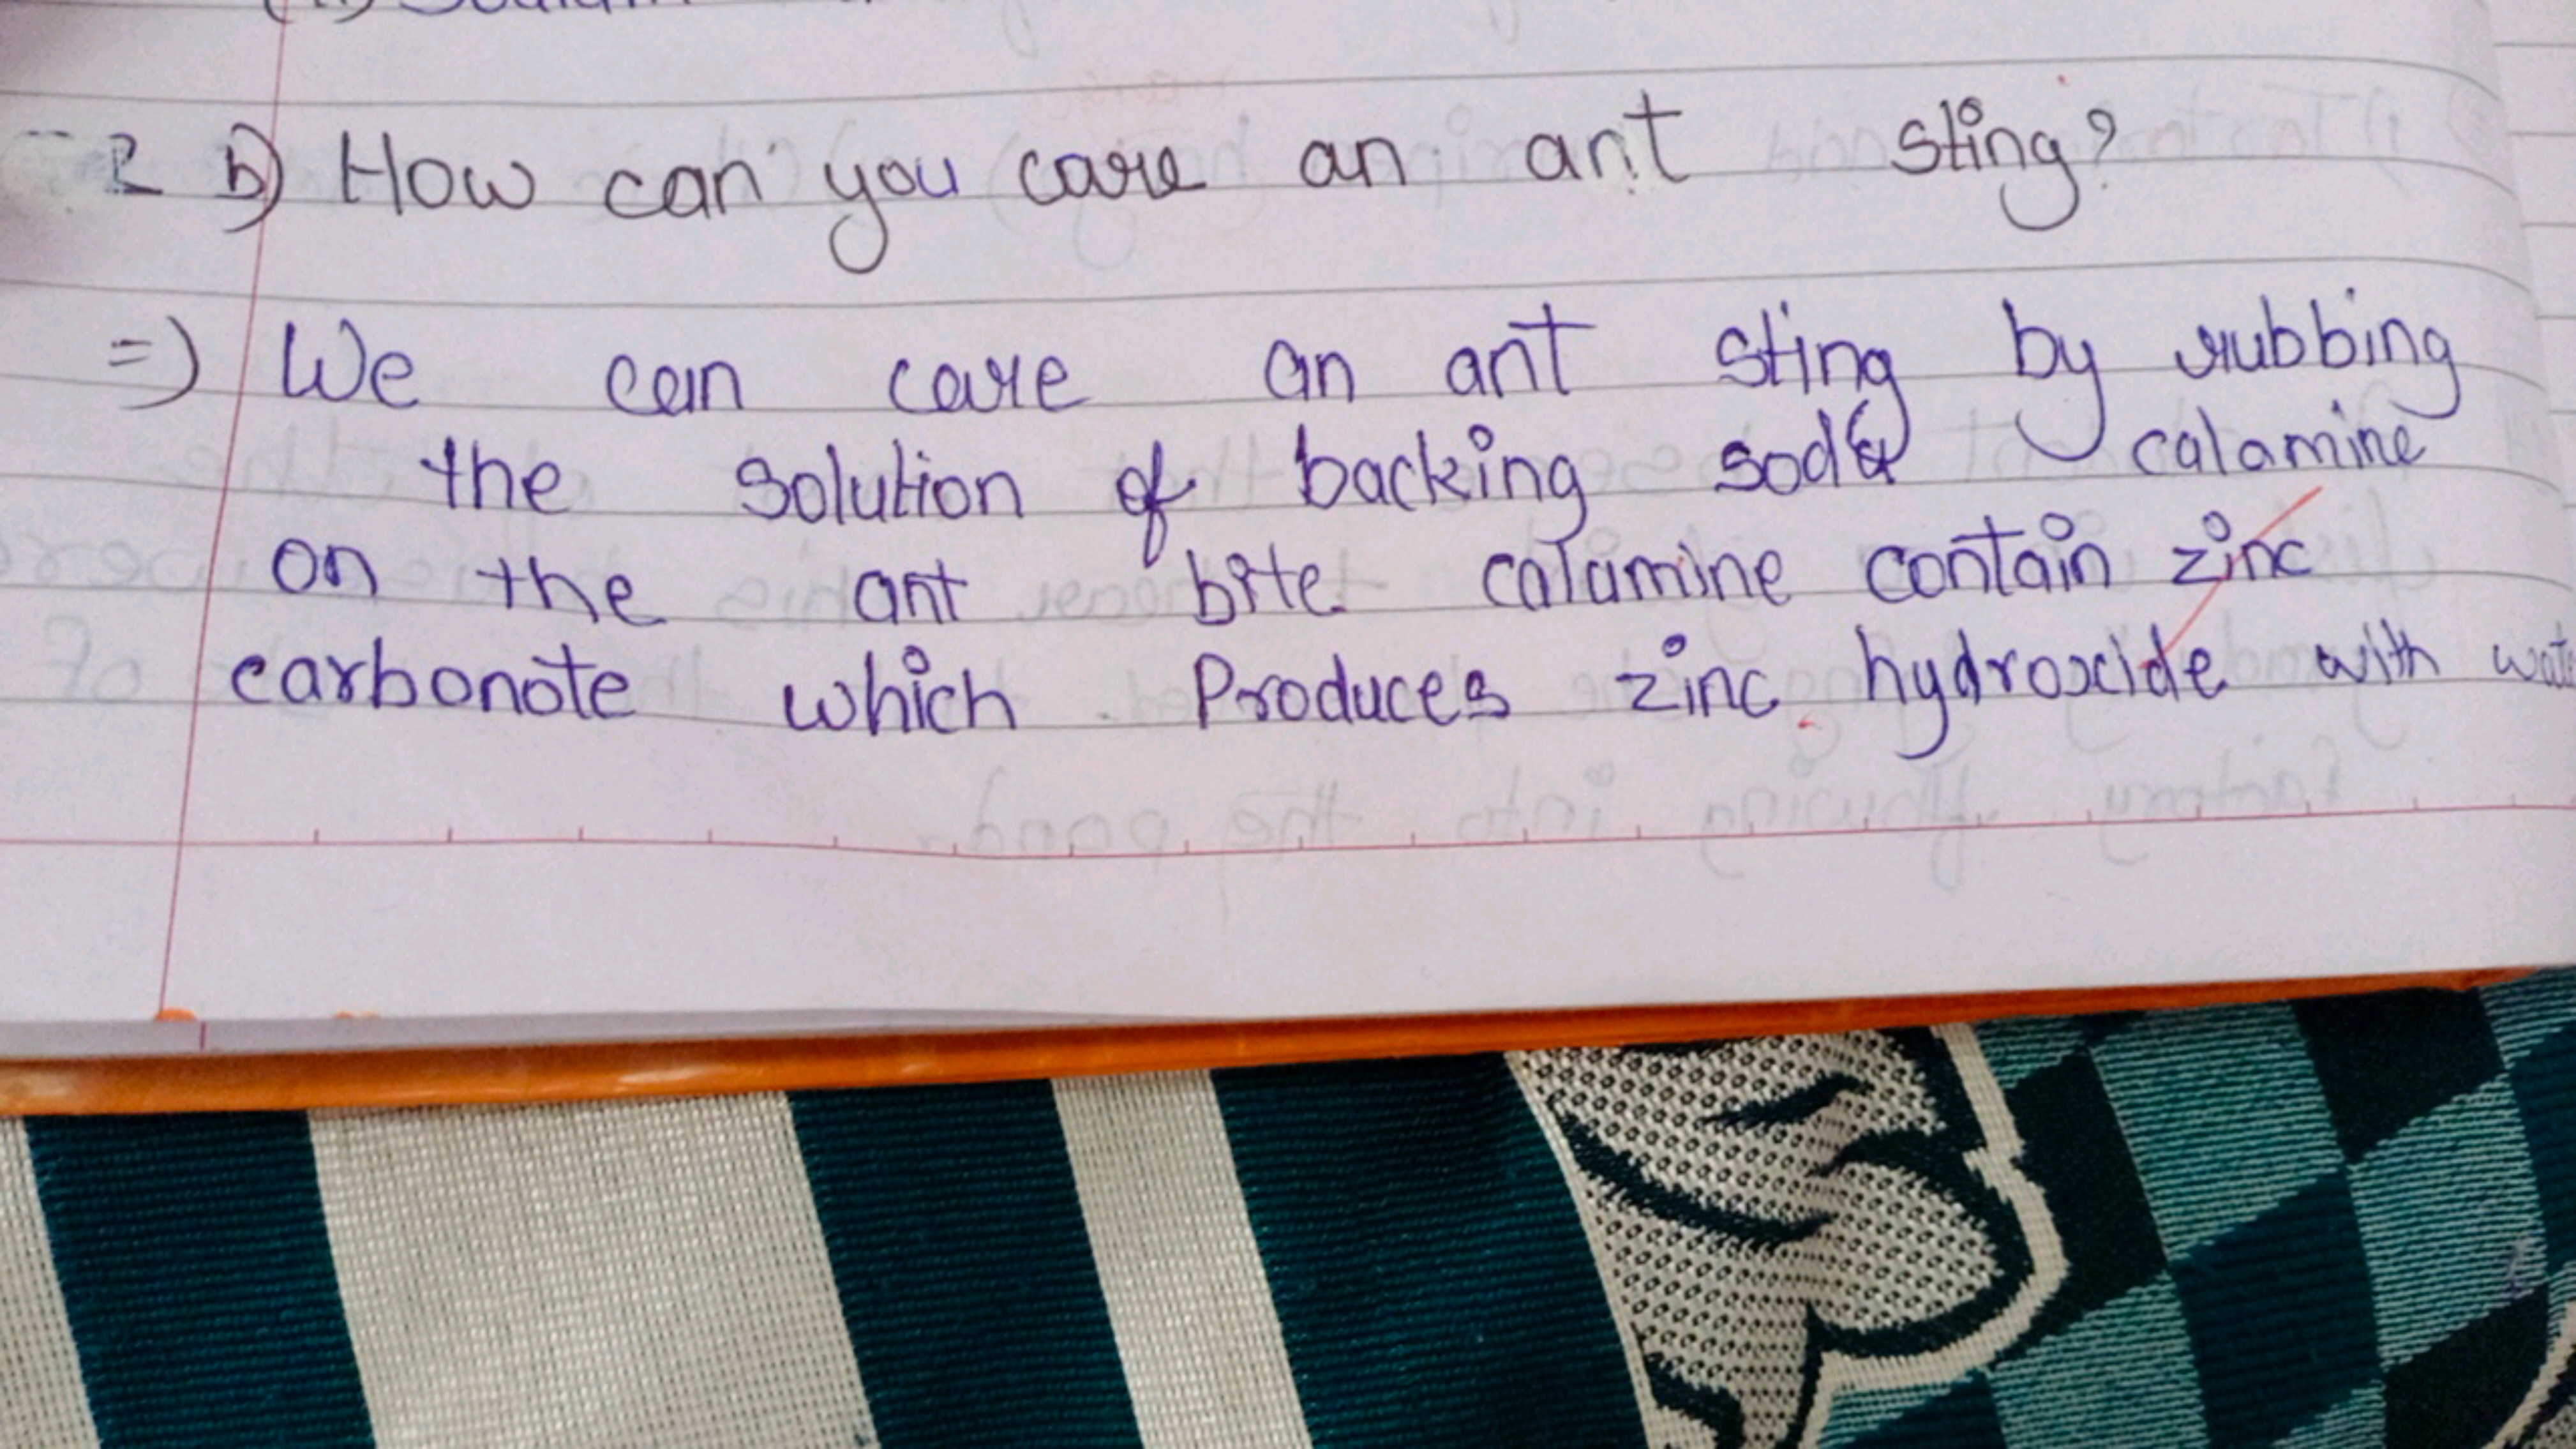 2 b) How can you care an ant sting?
=) We can care an ant sting by rubbing
the solution of backing soda & calamine
on the ant bite calamine contain zinc
carbonote which Produces zinc hydroxide with